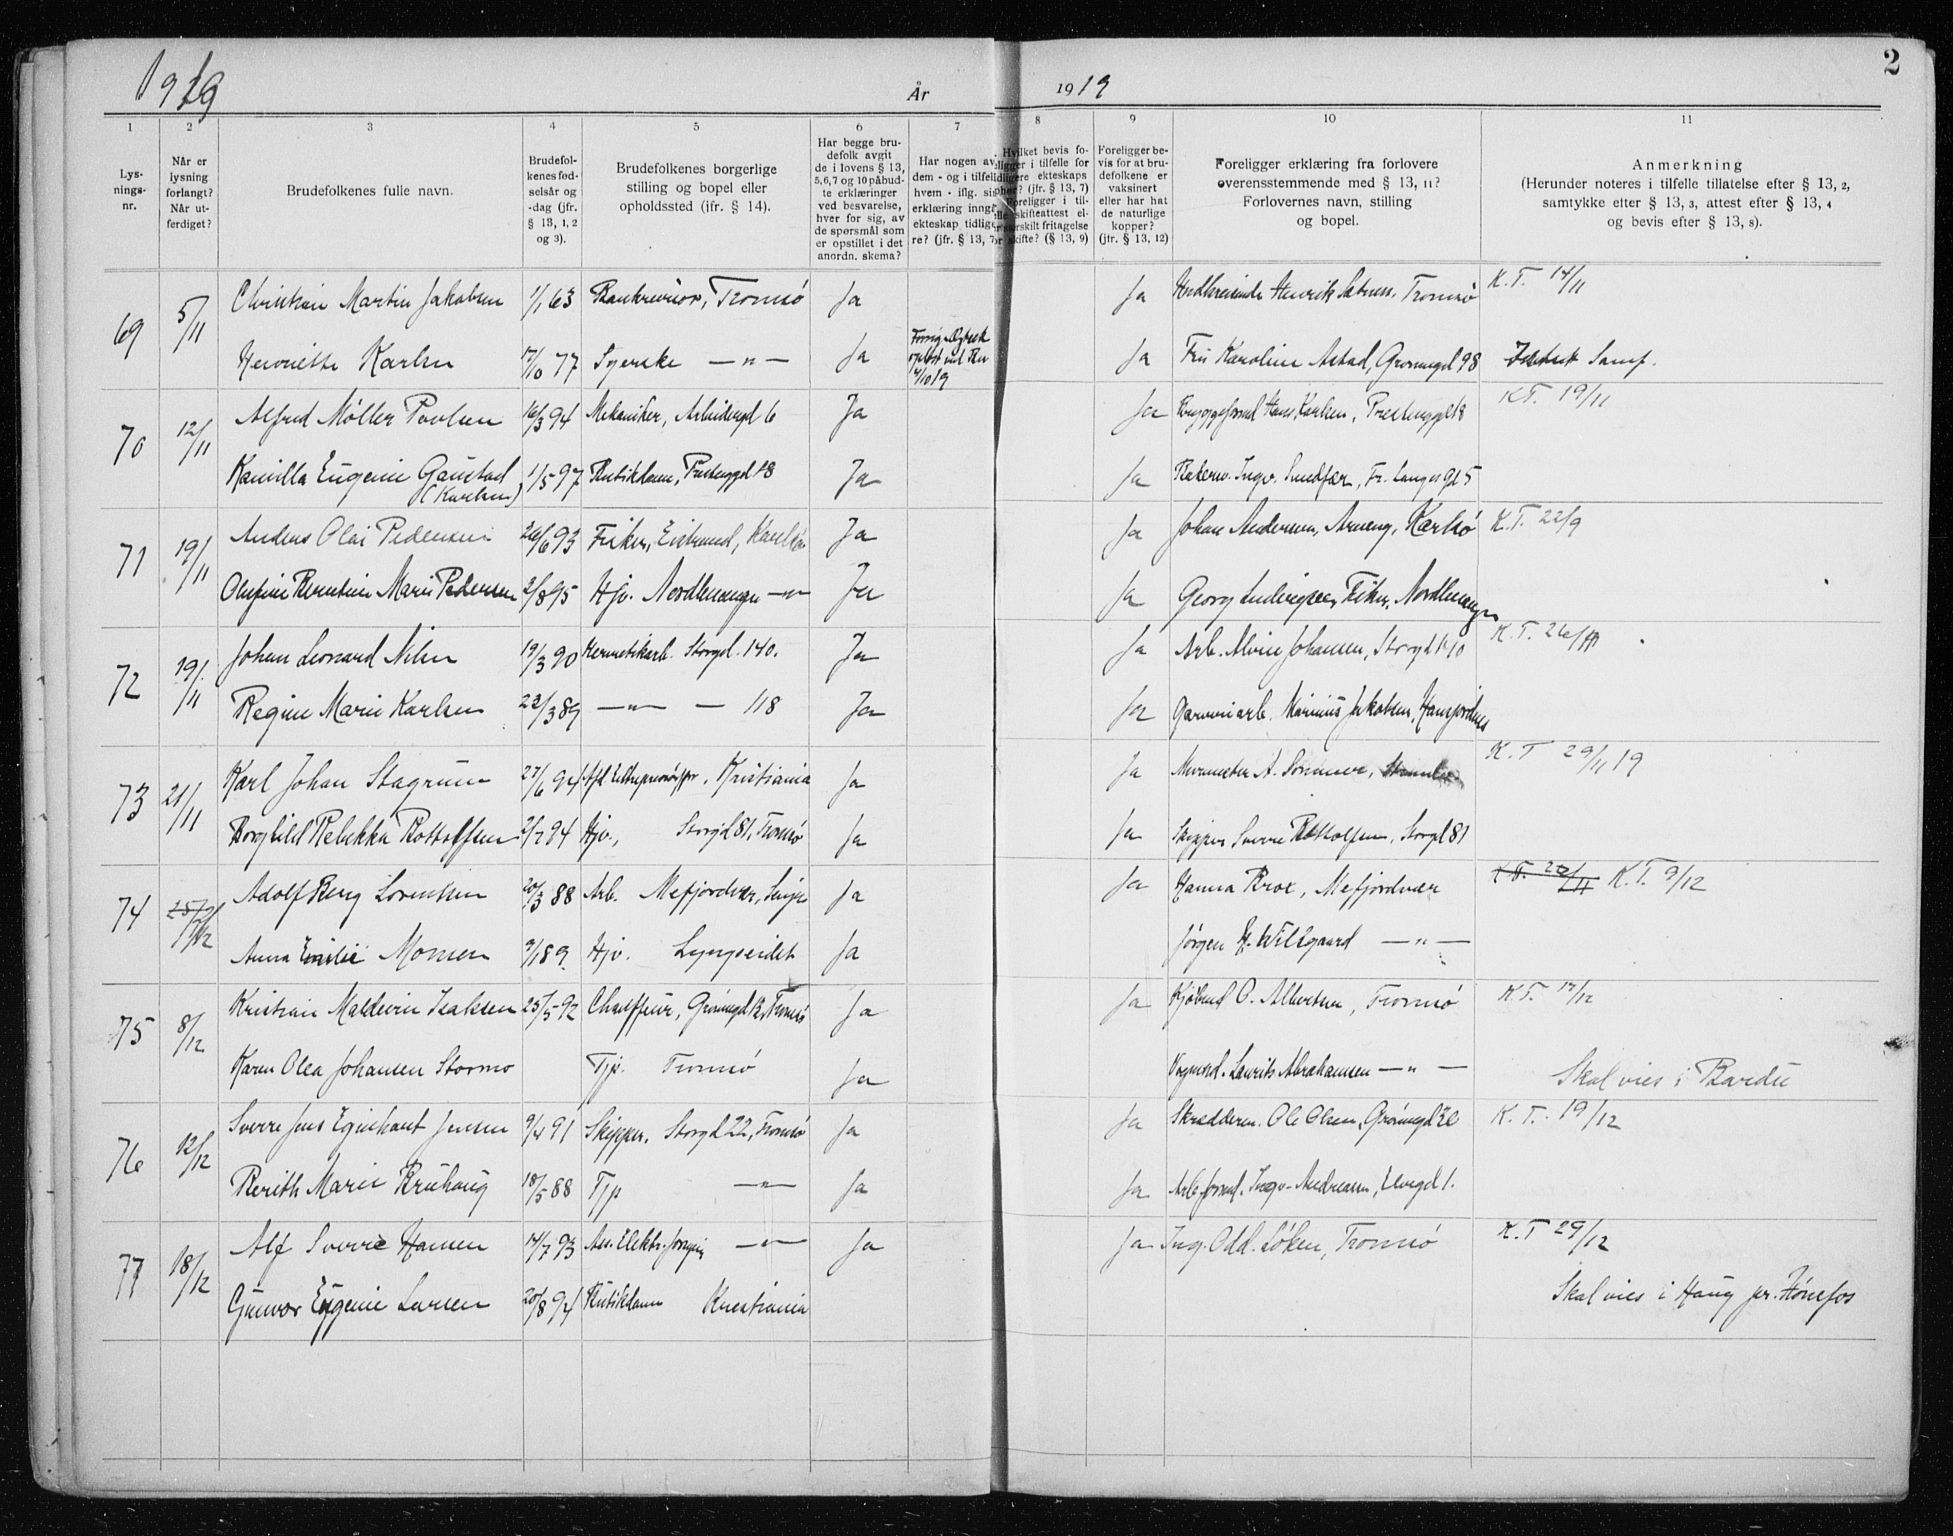 1919 År 1919 2
1 2 3 4 5 6 7 8 9 10 11
Lys-
nings-
nr.
Når er
lysning
forlangt?
Når ut-
ferdiget?
Brudefolkenes fulle navn.
Brudefol-
kenes fød-
selsår og
-dag (jfr.
§ 13, 1, 2
og 3).
Brudefolkenes borgerlige
stilling og bopel eller
opholdssted (jfr. § 14).
Har begge bru-
defolk avgit
de i lovens § 13,
5,6,7 og 10 påbud-
te erklæringer
ved besvarelse,
hver for sig, av
de spørsmål som
er opstillet i det
anordn. skema?
Har nogen av
dem - og i tilfelle
hvem - iflg.
erklæring inngått
ekteskap tidlige-
re? (jfr. § 13, 7
Hvilket bevis fo-
religger i tilfelle for
tidligere ekteskaps
ophør? (jfr. § 13, 7)
Foreligger i til-
felle skifteattest el-
ler særskilt fritagelse
for skifte? (§ 13, 9)
Foreligger be-
vis for at bru-
defolkene er
vaksinert
eller har hat
de naturlige
kopper?
(jfr. § 13, 12)
Foreligger erklæring fra forlovere
overensstemmende med § 13, 11?
Forlovernes navn, stilling
og bopel.
Anmerkning
(Herunder noteres i tilfelle tillatelse efter § 13, 2,
samtykke etter § 13, 3, attest efter § 13, 4
og bevis efter § 13, 8).
69 5/11 Christian Martin Jakobsen 1/1 63 Bankrevisor, Tromsö Ja Ja Henrik Tromsö K.T. 14/11
Henriette Karlsen 17/10 77 Syerske —"— Ja Ja Fru Karoline Astad, Grønnegd 98 Samf.
70 12/11 Alfred Møller Povlsen 16/3 94 Mekaniker, Arbeidergd 6 Ja Ja Bryggeformd Hans Karlsen, Prestenggt 18 K.T. 19/11
Kamilla Eugenie Gaustad 1/5 97 Butikdame, Prestenggd 18 Ja Ja Ingv. Sundfær, Fr. Langes gd 5
(Karlsen)
71 19/11 Anders Olai Pedersen 26/6 93 Fisker, Karlsö Ja Ja Johan Andersen, Karlsö K.T. 22/9
Olufine Berntine Marie Pedersen 2/8 95 Hjv. —"— Ja Ja Georg Ludvigsen, Fisker,
72 19/11 Johan Leonard Nilsen 19/3 90 Hermetikarb. Storgd. 140. Ja Ja Arb. Johansen, Storgd 140 K.T. 26/11
Regine Marie Karlsen 22/3 89 —"— — 118 Ja Ja Garveriarb. Marinius Jakobsen,
73 21/11 Karl Johan Stagrum 27/6 94 Kristiania Ja Ja Murmester A. Sommer, K.T 29/11 19
Borghild Rebekka Rottolfsen 2/7 94 Hjv., Storgd 81, Tromsö Ja Ja Skipper Sverre Rottolfsen, Storgd 81
74 Adolf Berg Lorentsen 20/3 88 Arb. Mefjordvær, Senjen Ja Ja Hanna Broe, Mefjordvær K.T. 9/12
Anna Emilie Monsen 9/1 89. Hjv. Lyngseidet Ja Jørgen H. Wilsgaard —"—
75 8/12 Kristian Maldevin Isaksen 25/5 92 Chauffeur, Grönnegd Tromsö Ja Ja Kjöbmd O. Albertsen, Tromsö K.T. 17/12
Karen Olea Johansen Stormo Tjp. Tromsö Ja Vognmd. Laurits Abrahamsen —"— Skal vies i Bardu
76 12/12 Sverre Jens Jensen 9/4 91 Skipper. Storgd 22, Tromsö Ja Ja Skrædderm. Ole Olsen, Grönnegd K.T. 19/12
Berith Marie Bruhaug 18/5 88 Tjp —"— Ja Ja Arb.formd. Ingv. Andreasen, Elvegd 1.
77 18/12 Alf Sverre Hansen 14/7 93 Ass. Elektr. —"— Ja Ja Ing. Odd. Löken, Tromsö K.T 29/12
Gunvor Eugenie Larsen 20/8 94 Butikdame Kristiania Skal vies i Haug pr. Hönefos